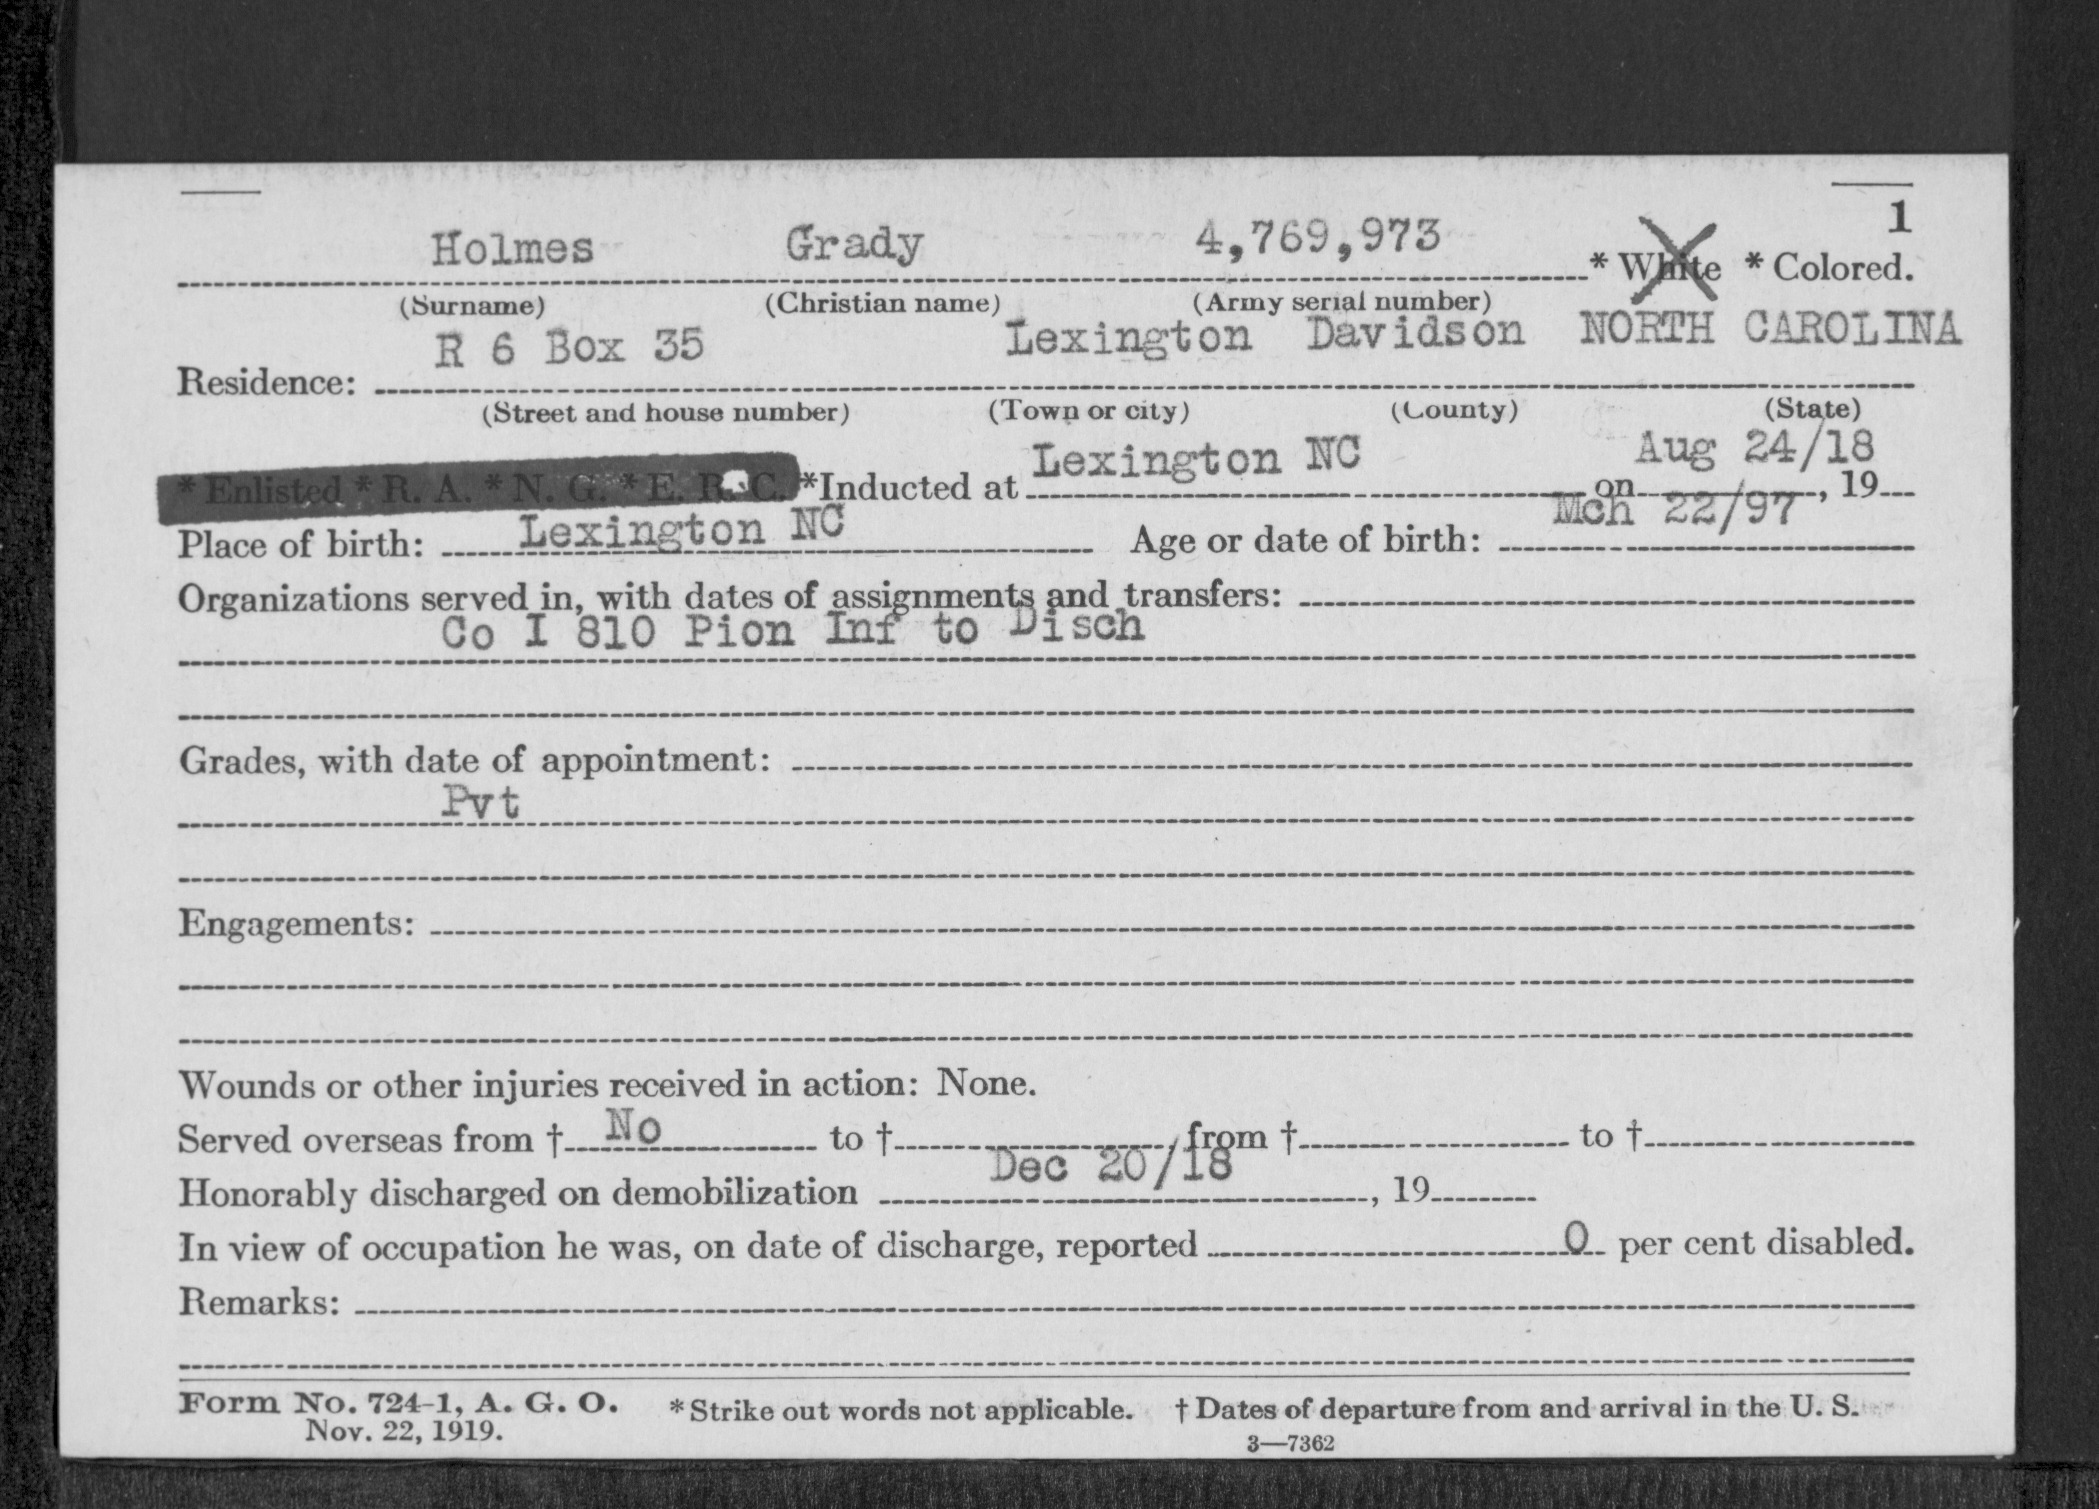 1
Holmes Grady 4,769,973 * White * Colored.
(Surname) (Christian name) (Army serial number)
R 6 Box 35 Lexington Davidson NORTH CAROLINA
Residence:
(Street and house number) (Town or city) (County) (State)
* Enlisted * R. A. * N. G. * E. R. C. *Inducted at Lexington NC on Aug 24/18, 19
Place of birth: Lexington NC Age or date of birth: Mch 22/97
Organizations served in, with dates of assignments and transfers:
Co I 810 Pion Inf to Disch
Grades, with date of appointment:
Pvt
Engagements:
Wounds or other injuries received in action: None.
Served overseas from † No to † , from † to †
Honorably discharged on demobilization Dec 20/18, 19
In view of occupation he was, on date of discharge, reported 0 per cent disabled.
Remarks:
Form No. 724-1, A. G. O. * Strike out words not applicable. † Dates of departure from and arrival in the U. S.
Nov. 22, 1919. 3—7362